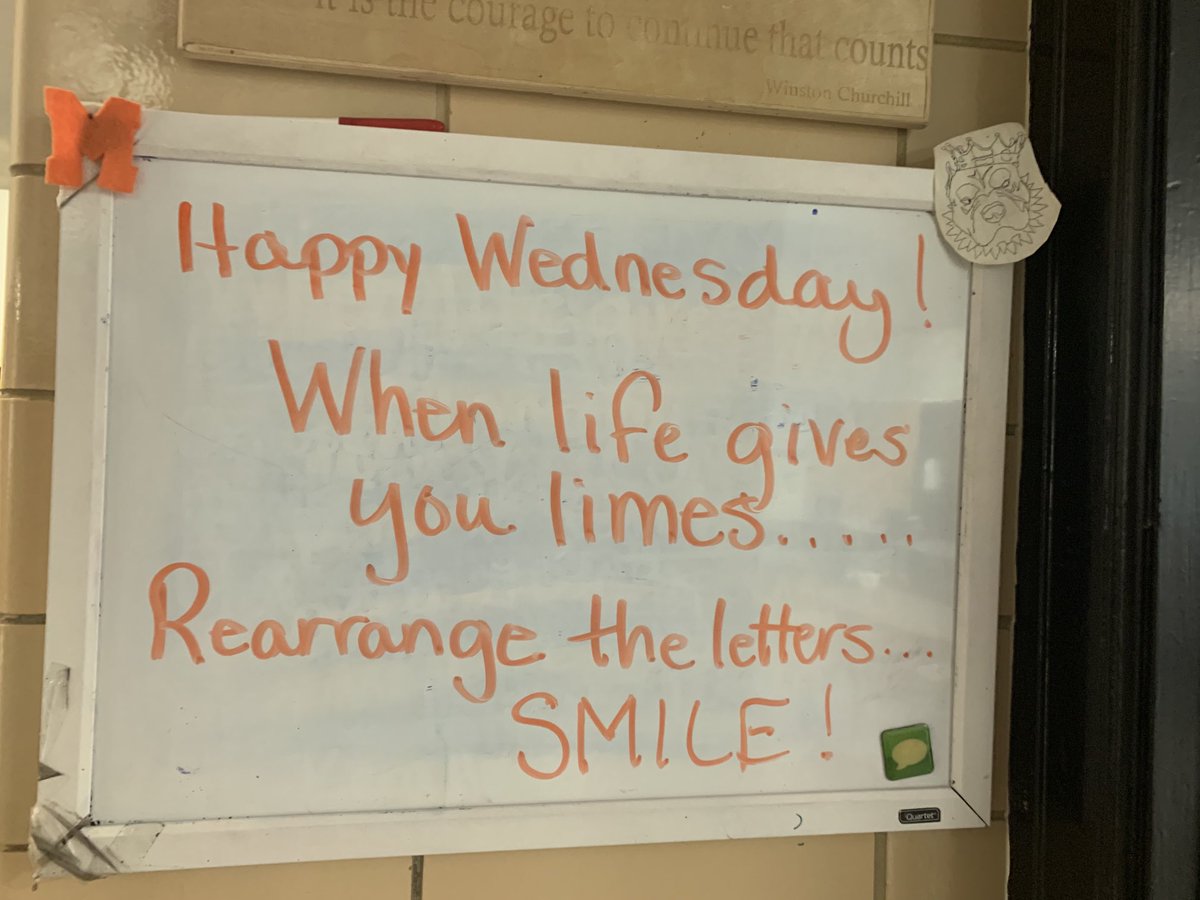 it is the courage to continue that counts
Winston Churchill
M
Happy Wednesday!
When life gives
you limes.....
Rearrange the letters...
SMILE!
Quartet